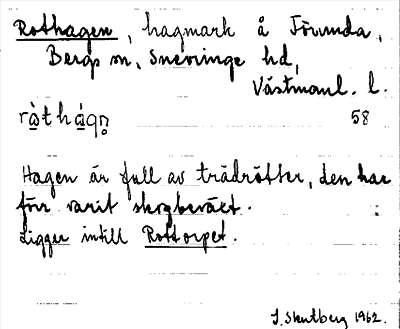 Rothagen, hagmark å Förvnda,
Bergs sn, Snevringe hd,
Västmanl. l.
ròt hágȩn 58
Hagen är full av trädrötter, den har
förr varit skogbeväxt.
Ligger intill Rottorpet.
J. Skutberg 1962.